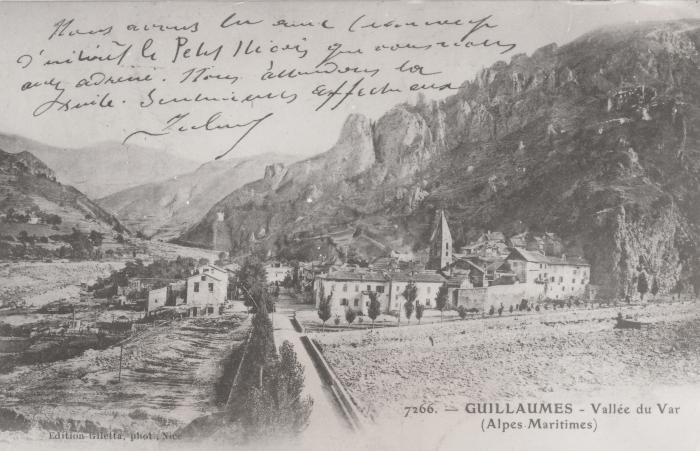 Nous avons lu avec beaucoup
d'intérêt le Petit Niçois que vous nous
avez adressé. Nous attendons la
suite. Souvenirs affectueux
7266. — GUILLAUMES - Vallée du Var
(Alpes Maritimes)
Edition Giletta, phot., Nice